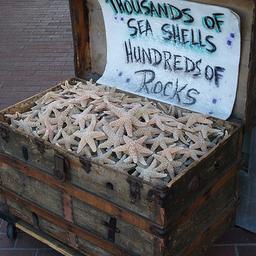 THOUSANDS OF
SEA SHELLS
HUNDREDS OF
ROCKS